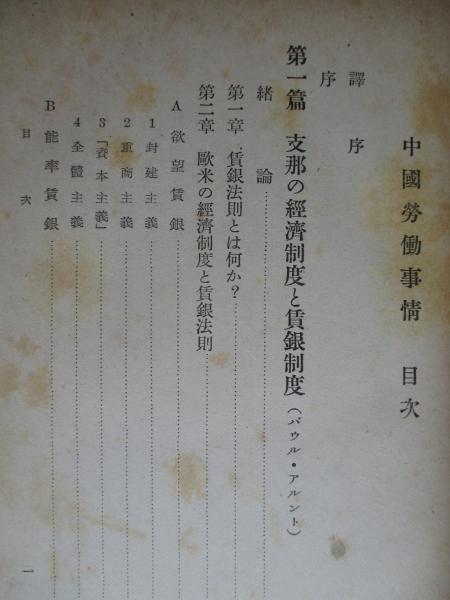 中國勞働事情 目次
譯序
序
第一篇 支那の經濟制度と賃銀制度（パウル・アルント）
緖論
第一章 賃銀法則とは何か？
第二章 歐米の經濟制度と賃銀法則
A 欲望賃銀
1 封建主義
2 重商主義
3 「資本主義」
4 全體主義
B 能率賃銀
目次
一